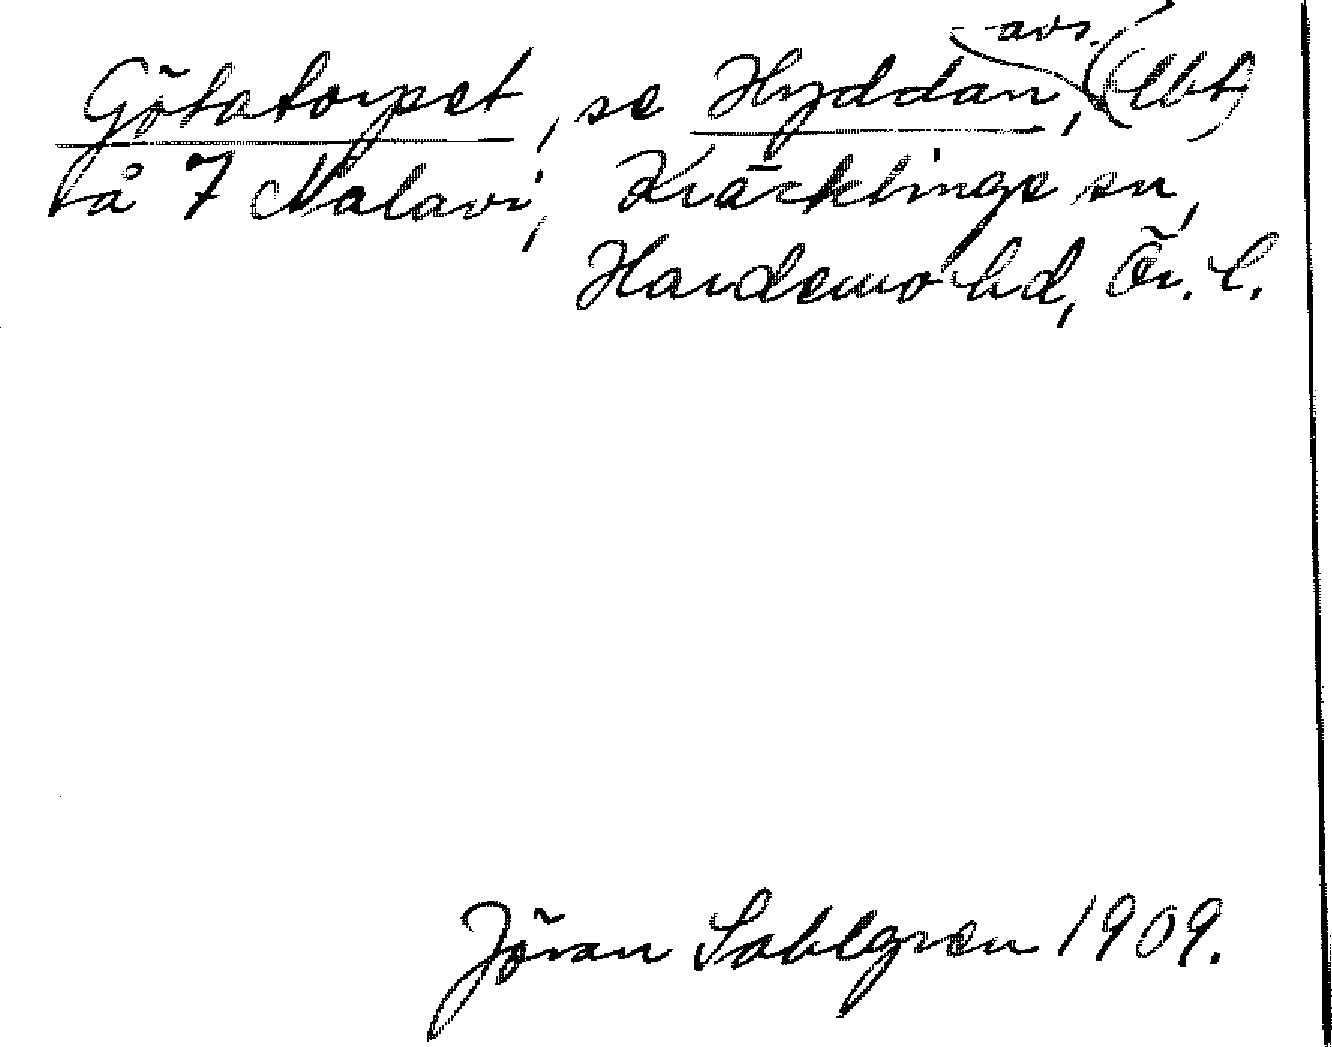 avs.
Götatorpet, se Hyddan, (lbt)
på 7 Nalavi, Kräcklinge sn,
Hardemo hd, Ör. l.
Jöran Sahlgren 1909.